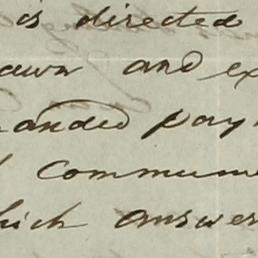 is directed
awn and ex
anded pay
commun
hich answer